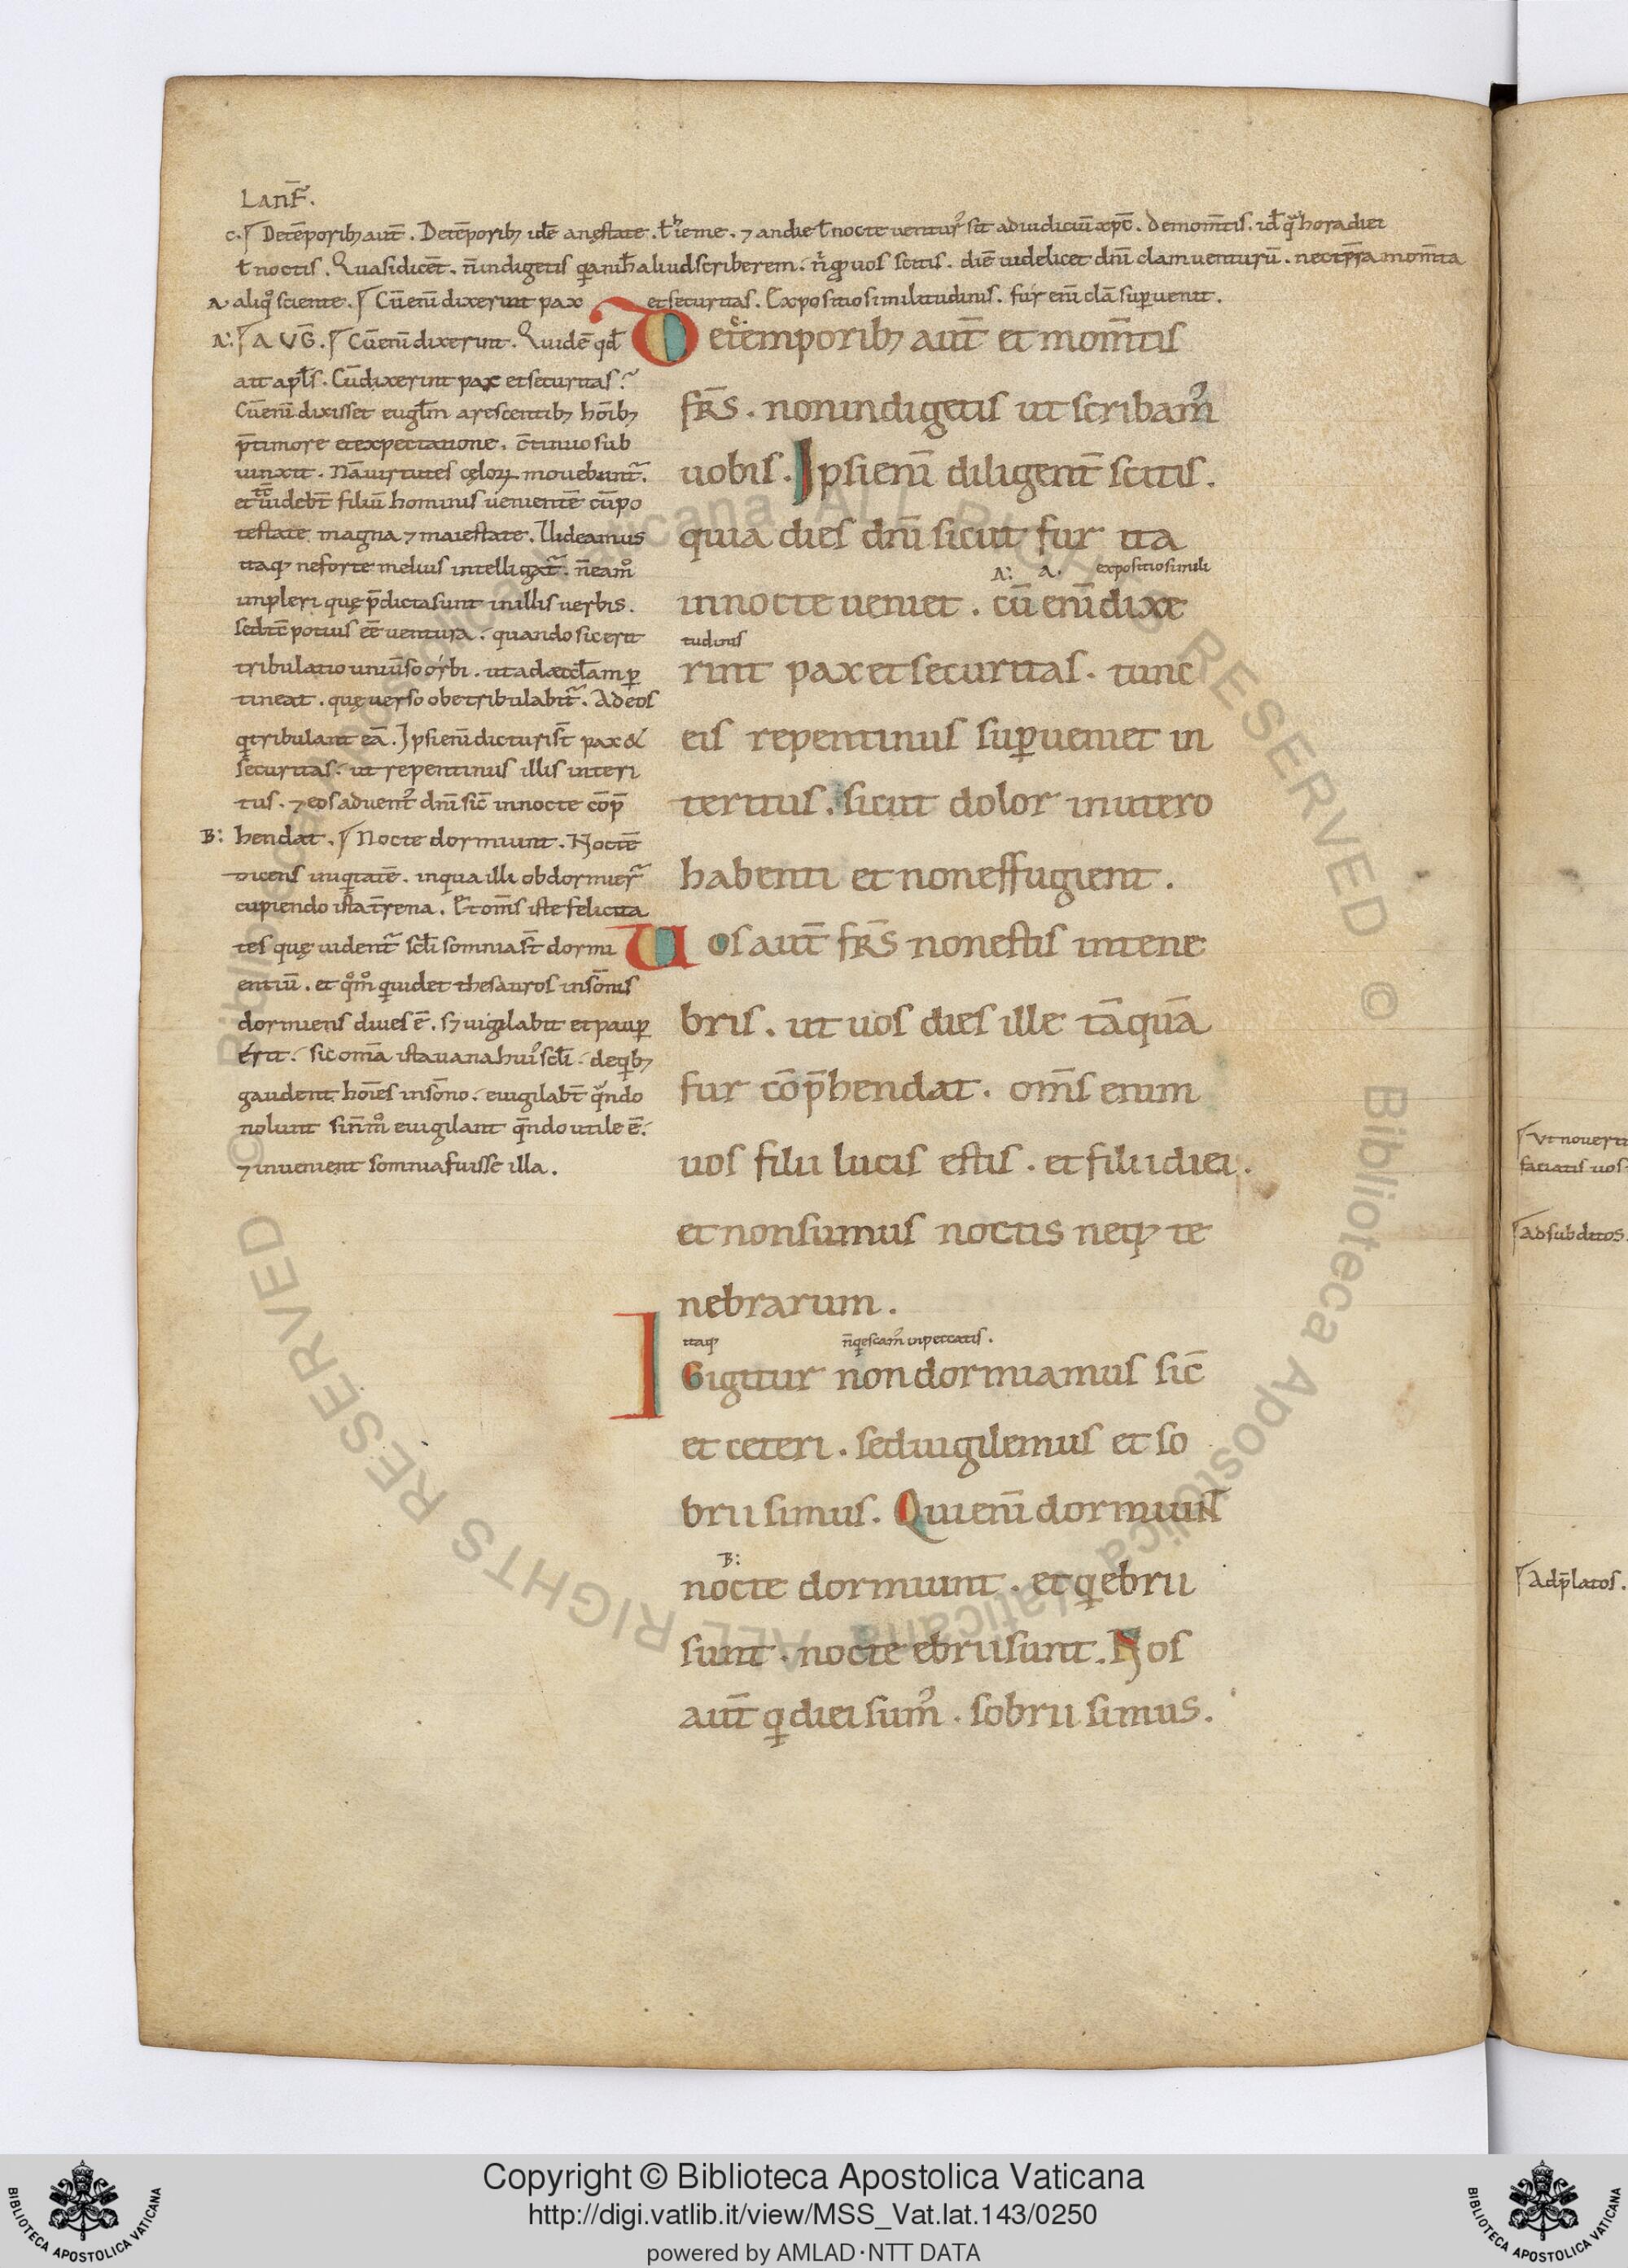 Lanf̄.
c. Detēporib; aut̄. Detēporib; idē an ęstate. ł ieme. ⁊ an die ł nocte ventur᷒ sit ad iudiciū xp̄c. De mom̄tis. id̄ qͣ hora diei
ł noctis. Quasi dicēt. n̄ indigetis aliud scriberem. uos scitis. diē uidelicet dn̄i clam uenturū. nec mom̄ta
a. aliqͦ sciente. Cū eni dixerint pax et securitas. Expositio similitudinis. fur eni clā sup̱uenit.
A: AUG̅. Cū eni dixerint. Quid ē qd̄
ait apl̄s. Cū dixerint pax et securitas?
Cū eni dixisset eug̅l̄m arescentib; hoīb;
p̄ timore et expectatione. c̄tinuo sub
uinxit. Nā uirtutes cęloꝝ mouebunt̄.
et tc̄ uidebt̄ filiū hominis uenientē cū po
testate magna ⁊ maiestate. Uideamus
itaq; ne forte melius intelligat̄. n̄ eam᷒
impleri quę p̄dicta sunt in illis uerbis.
sed tc̄ potius eē uentura. quando sic erit
tribulatio uniūso orbi. ut ad aeccl̄am p̱
tineat. quę uerso obe tribulabit̄. Ad eos
q tribulant eā. Ipsi eni dicturi st̄ pax &
securitas. ut repentinus illis interi
tus. ⁊ eos aduent᷒ dn̄i sic̄ in nocte cōp̄
B: hendat. Nocte dormiunt. Noctē
dicens iniqtatē. in qua illi obdormier̄
cupiendo ista t̄rena. Et om̄s iste felicita
tes quę uident̄ scl̄i somnia st̄ dormi
entiū. et qͦm̊ qui det thesauros in som̄is
dormiens diues ē. s; uigilabit et paup̱
erit. sic om̄a ista uana hui᷒ scl̄i. de qb;
gaudent hoīes in sōno. euigilabt̄ qͣndo
nolunt si n̄ m̊ euigilant qͣndo utile ē.
⁊ inuenient somnia fuisse illa.
De temporib; aut̄ et mom̄tis
fr̄s. non indigetis ut scribam᷒
uobis. Ipsi eni diligent̄ scitis.
quia dies dn̄i sicut fur ita
A: a. expositio simili
in nocte ueniet. cū eni dixe
tudinis
rint pax et securitas. tunc
eis repentinus sup̱ueniet in
teritus. sicut dolor in utero
habenti et non effugient.
Uos aut̄ fr̄s non estis in tene
bris. ut uos dies ille tāquā
fur cōp̄hendat. om̄s enim
uos filii lucis estis. et filii diei.
et non sumus noctis neq; te
nebrarum.
itaq; n̄ qescam᷒ in peccatis.
Igitur non dormiamus sic̄
et ceteri. sed uigilemus et so
brii simus. Qui eni dormiunt
B:
nocte dormiunt. et q ebrii
sunt. nocte ebrii sunt. Nos
aut̄ q diei sum᷒. sobrii simus.
Ut noueriti
faciatis uos
Ad subditos.
Ad p̄latos.
Copyright © Biblioteca Apostolica Vaticana
http://digi.vatlib.it/view/MSS_Vat.lat.143/0250
powered by AMLAD·NTT DATA
BIBLIOTECA APOSTOLICA VATICANA
BIBLIOTECA APOSTOLICA VATICANA
© Biblioteca Apostolica Vaticana ALL RIGHTS RESERVED
© Biblioteca Apostolica Vaticana ALL RIGHTS RESERVED